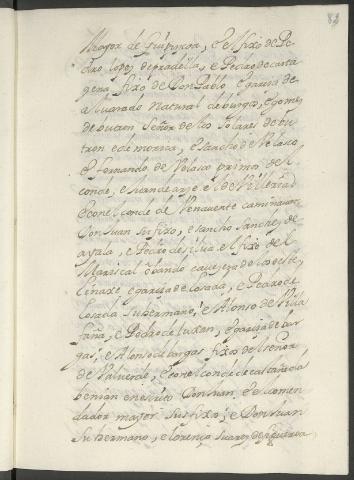 82
Mayor de Guipuzcoa, e el fixo de Pe
dro lopez de pradilla, e Pedro de carta
gena fixo de Don Pablo, e garcia de
alvarado natural de burgos, e gomez
de butron Señor de los solares de bu
tron e de moxica, e Sancho de Velasco,
e fernando de Velasco primos del
conde, e Juan de
e con el conde de Venavente caminavan
Don Juan su fixo, e sancho sanchez de
ayala, e Pedro de silva, e el fixo del
Mariscal
linaxe e garcia de Losada, e Pedro de
Losada su hermano, e Alonso de Villa
faña, e Pedro de luxan, e garcia de bar
gas, e Alonso de bargas fixos del señor
de Valverde, e con el conde de castañeda
benian en escrito Don Juan, e el comen
dador mayor sus fixos, e Don Juan
su hermano, e lorenzo suarez de figueroa